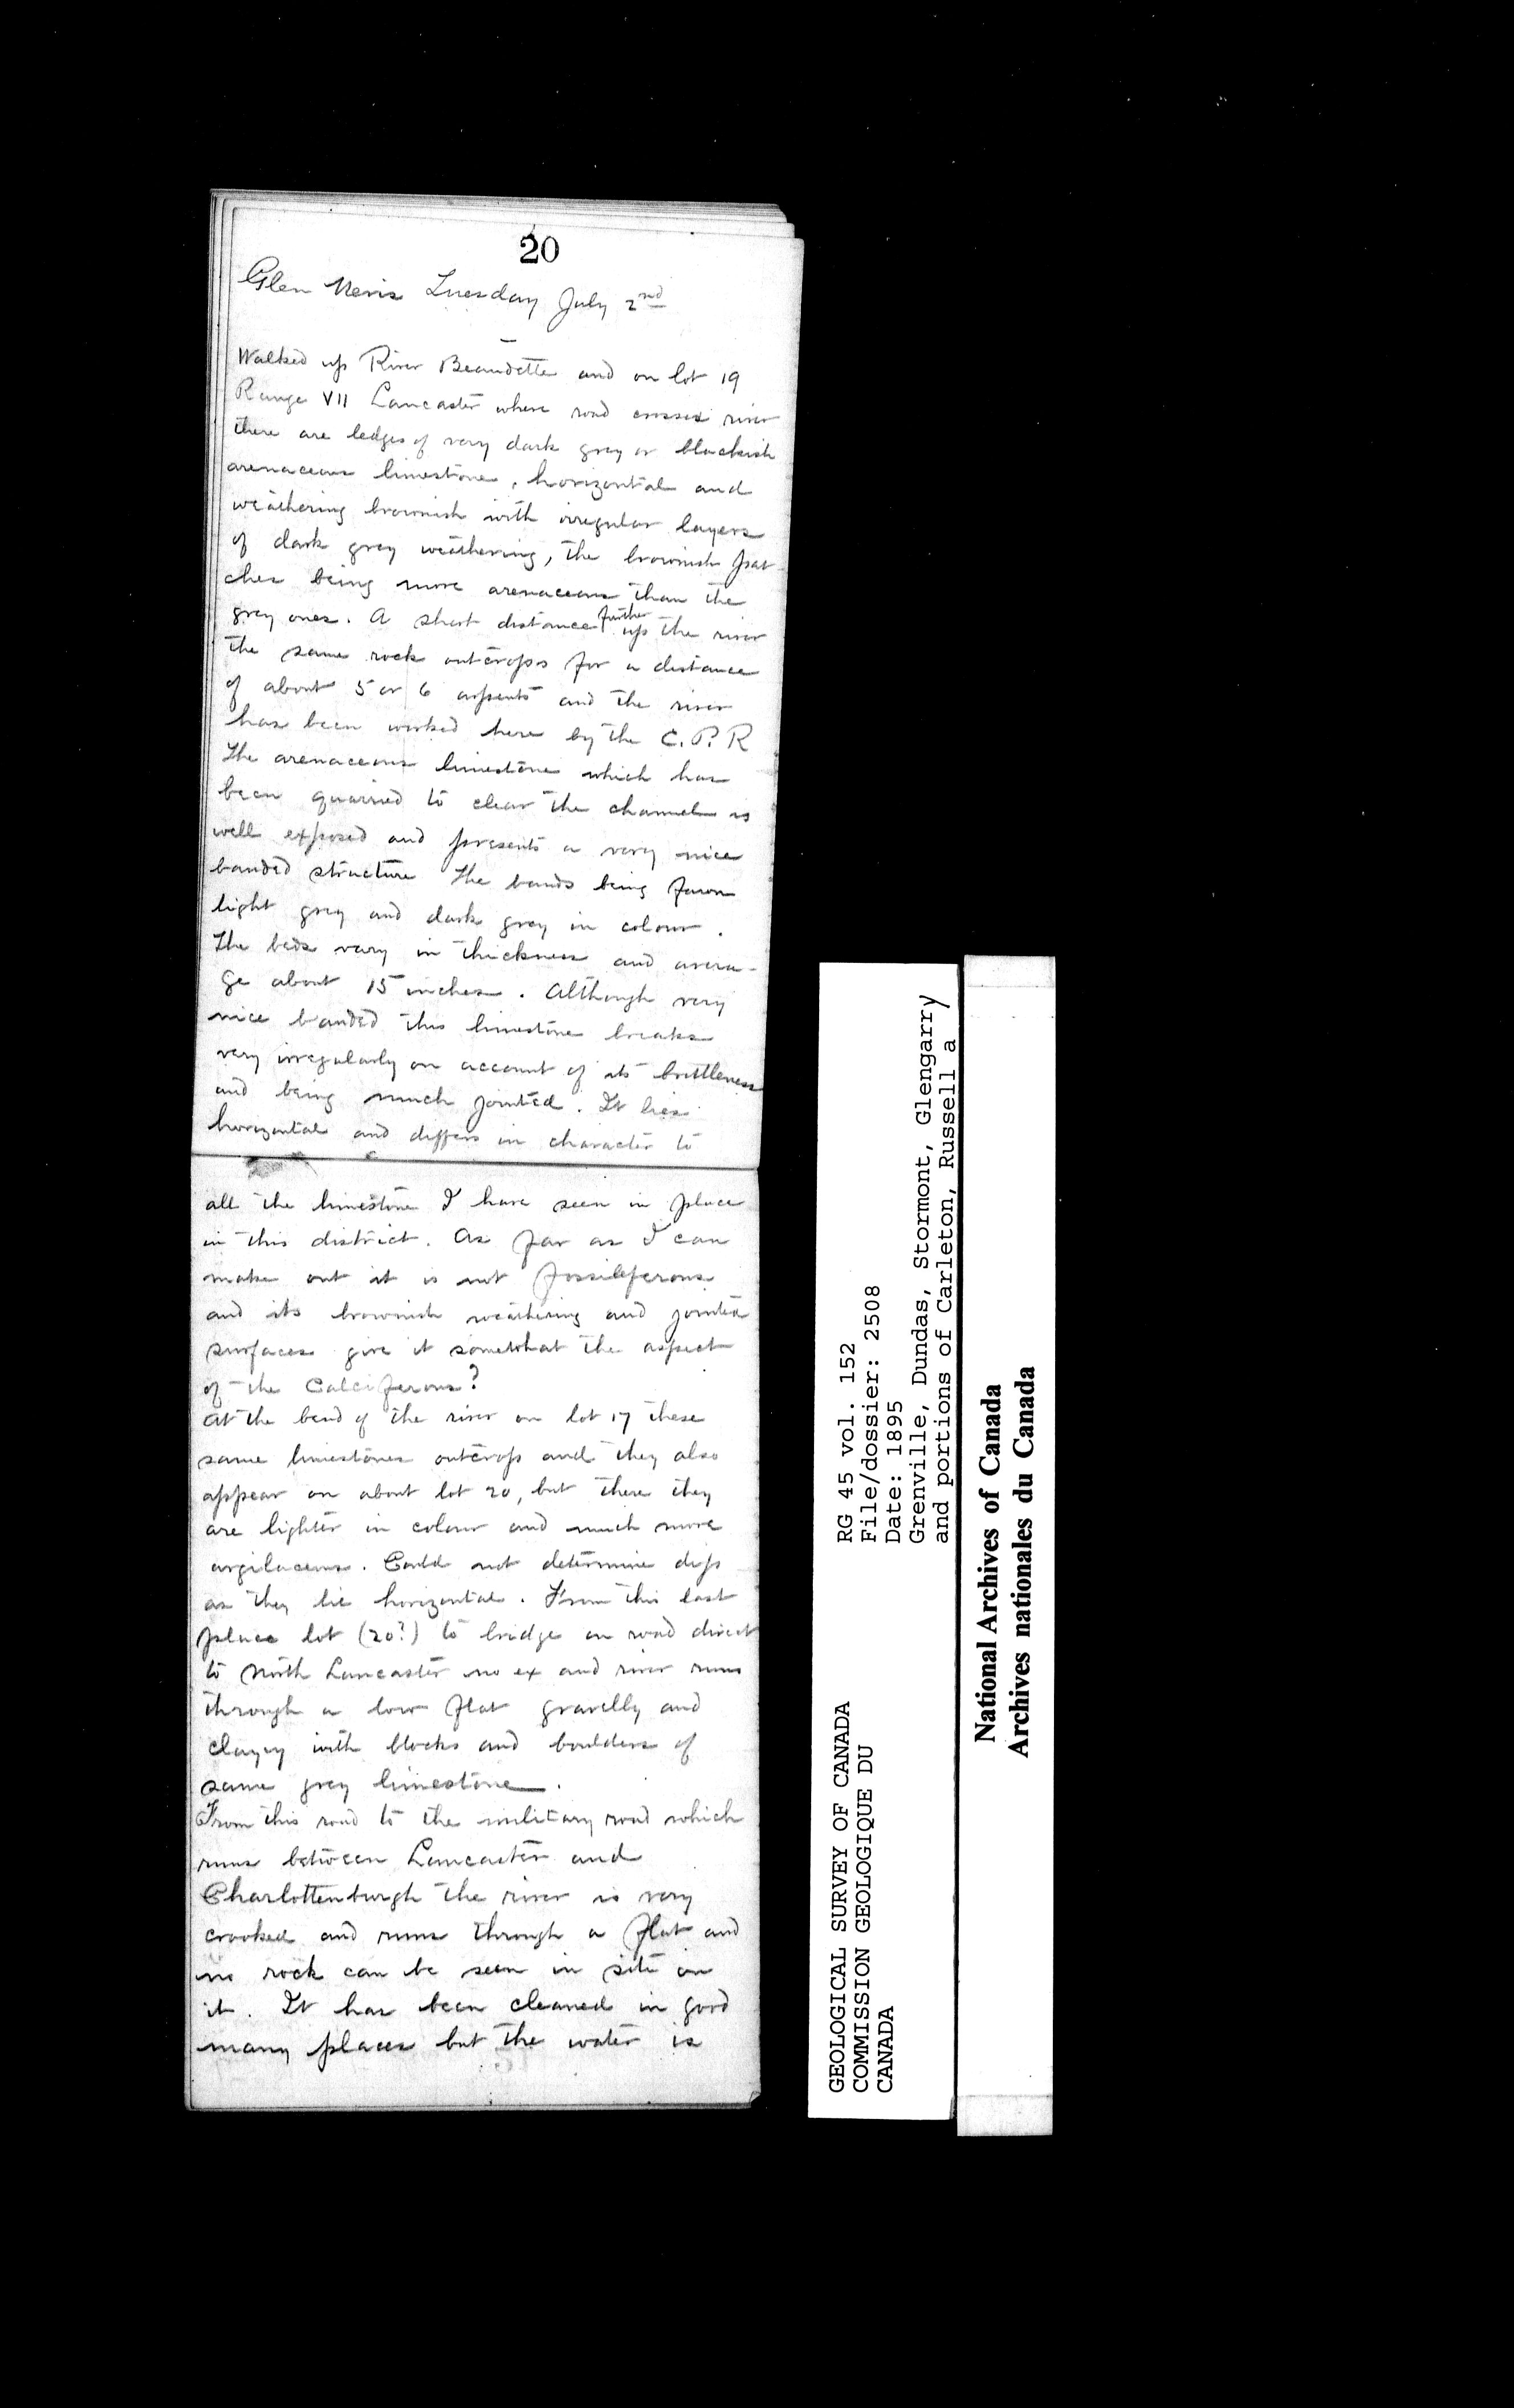 20
Glen Nevis Tuesday July 2nd
Walked up River Beaudette and on lot 19
Range VII Lancaster where road crosses river
there are ledges of very dark grey or blackish
arenaceous limestone, horizontal and
weathering brownish with irregular layers
of dark grey weathering, the brownish pat-
ches being more arenaceous than the
grey ones. A short distance further up the river
the same rock outcrops for a distance
of about 5 or 6 arpents and the river
has been worked here by the C.P.R
The arenaceous limestone which has
been quarried to clear the channel is
well exposed and presents a very nice
banded structure the bands being fawn
light grey and dark grey in colour.
The beds vary in thickness and avera-
ge about 15 inches. Although very
nice banded this limestone breaks
very irregularly on account of its brittleness
and being much jointed. It lies
horizontal and differs in character to
all the limestone I have seen in place
in this district. As far as I can
make out it is not fossiliferous
and its brownish weathering and jointed
surfaces give it somewhat the aspect
of the Calciferous?
At the bend of the river on lot 17 these
same limestones outcrop and they also
appear on about lot 20, but there they
are lighter in colour and much more
argilaceous. Could not determine dip
as they lie horizontal. From this last
place lot (20?) to bridge on road direct
to North Lancaster no ex and river runs
through a low flat gravelly and
clayey with blocks and boulders of
same grey limestone.
From this road to the military road which
runs between Lancaster and
Charlottenburgh the river is very
crooked and runs through a flat and
no rock can be seen in situ on
it. It has been cleaned in good
many places but the water is
GEOLOGICAL SURVEY OF CANADA
COMMISSION GEOLOGIQUE DU
CANADA
RG 45 vol. 152
File/dossier: 2508
Date: 1895
Grenville, Dundas, Stormont, Glengarry
and portions of Carleton, Russell a
National Archives of Canada
Archives nationales du Canada